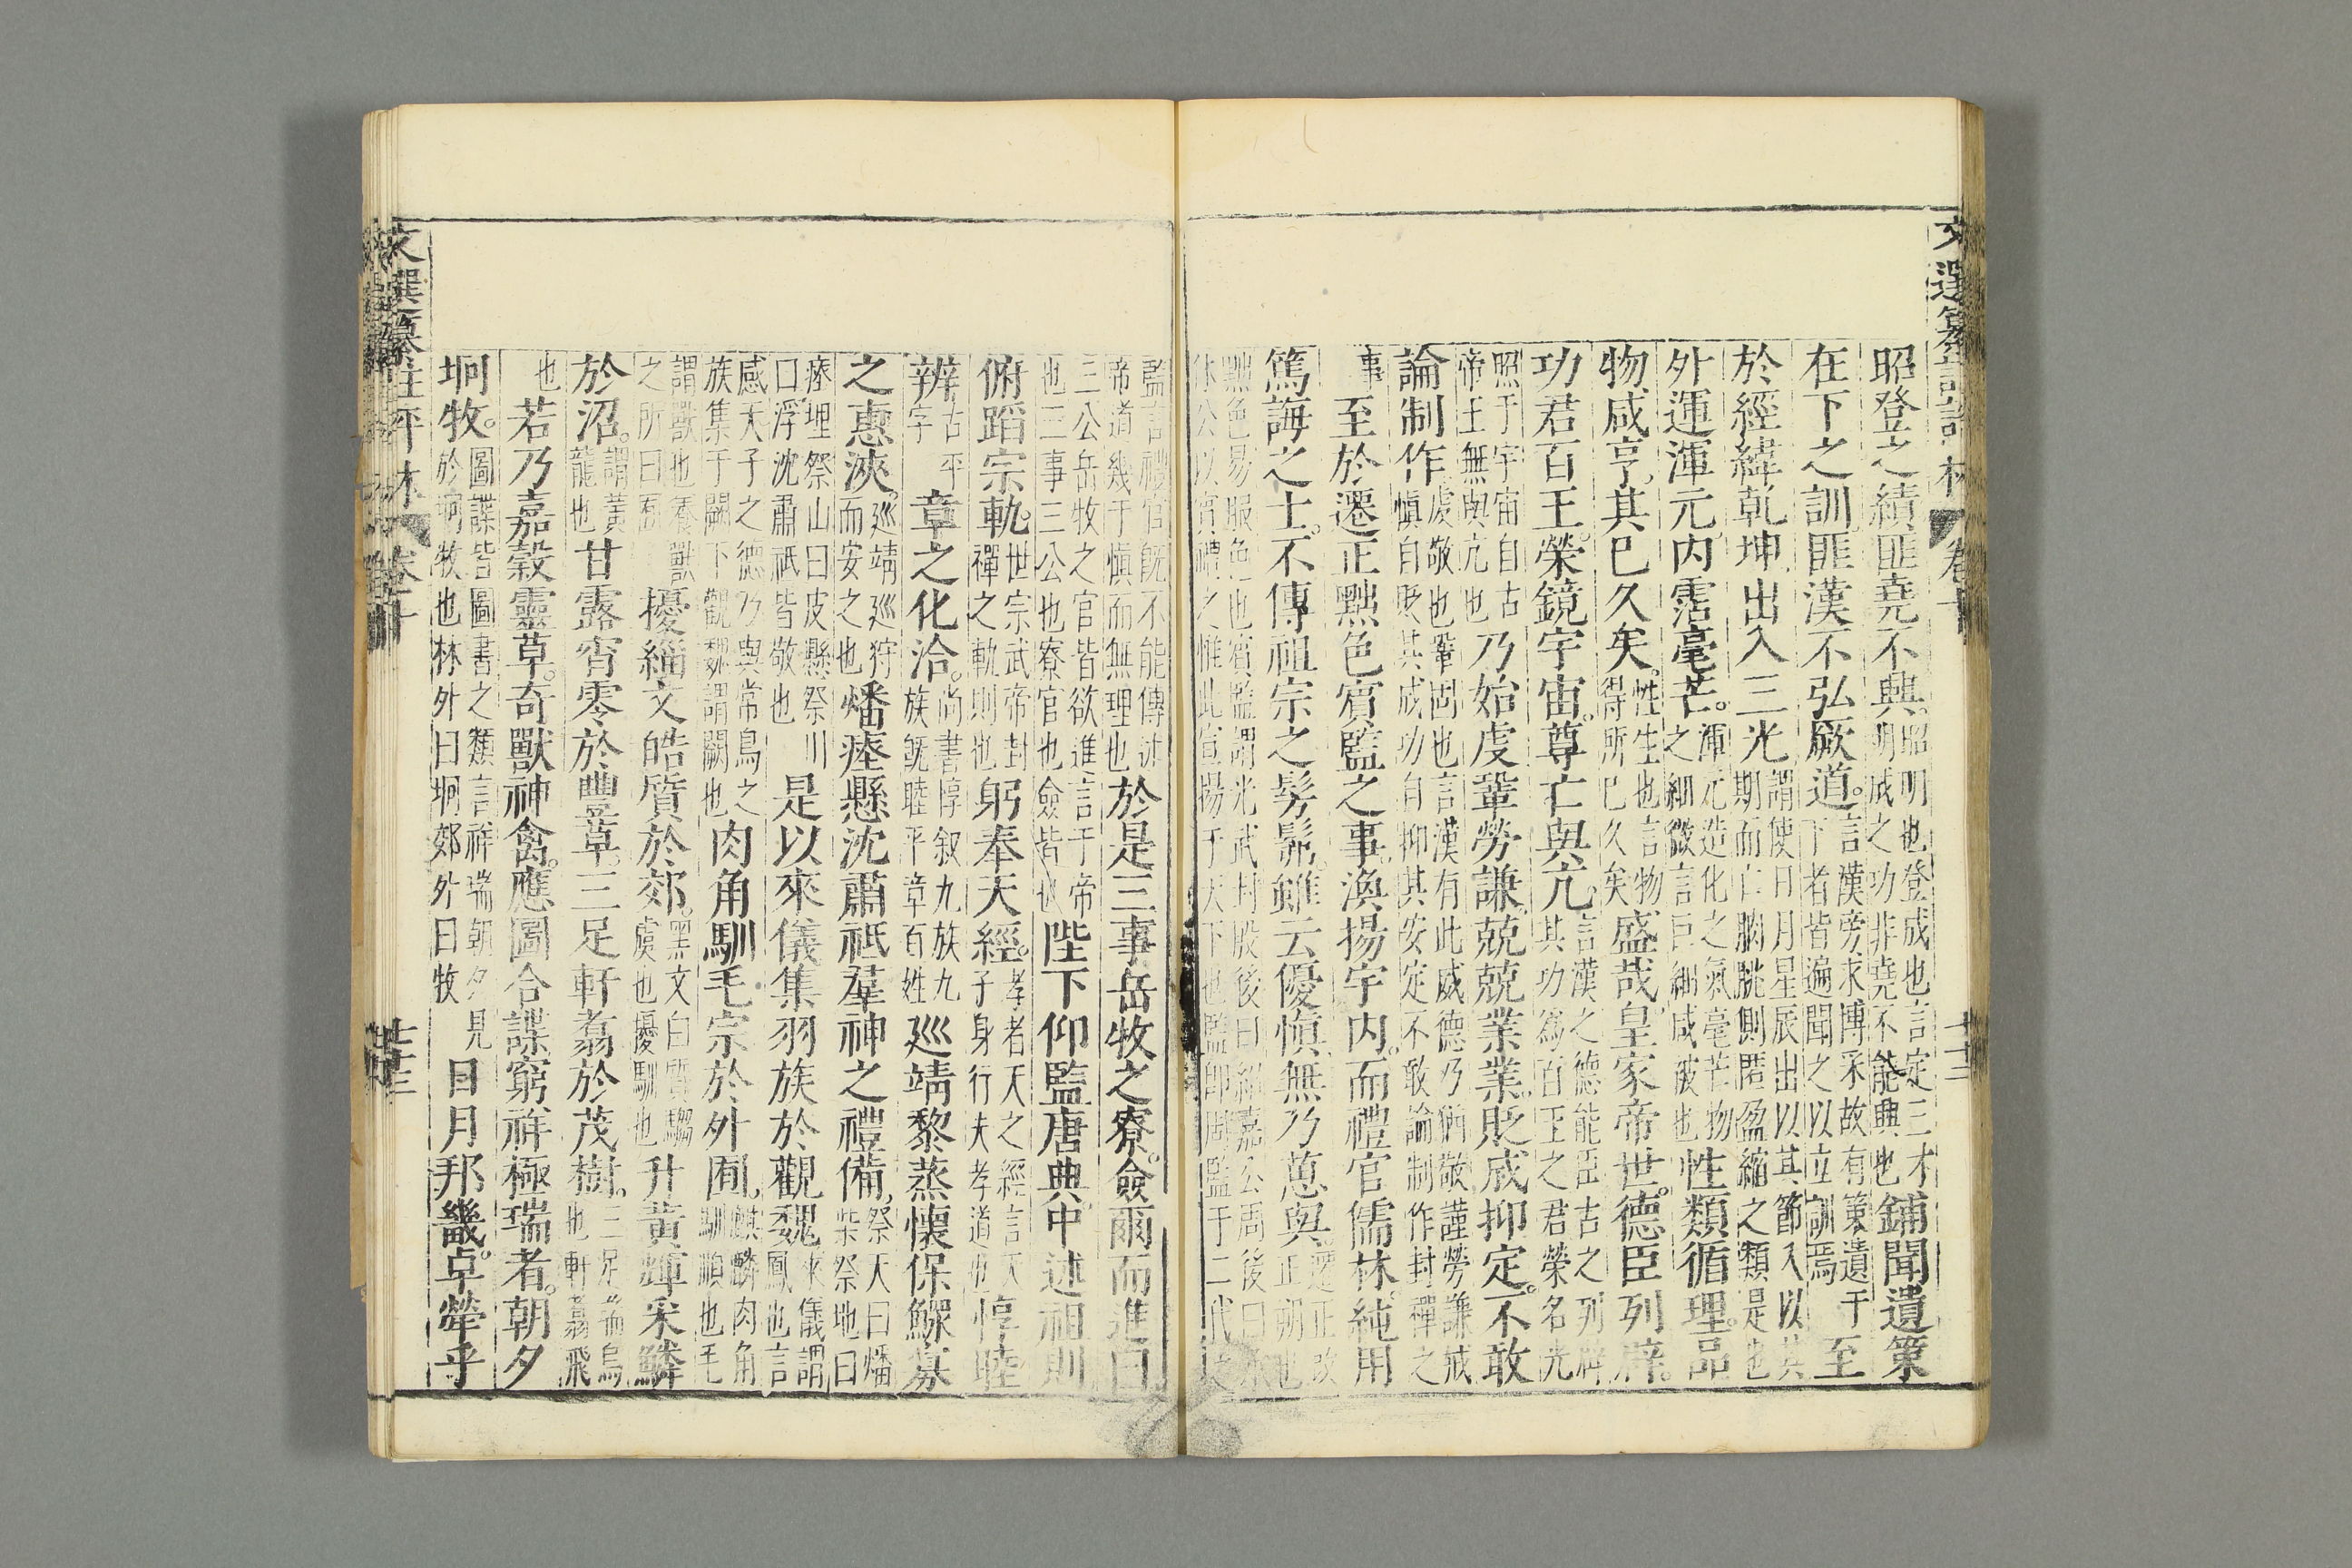 文選纂註評林 卷十 十三
昭登之績匪堯不興。昭明也登成也言定三才明成之功非堯不能興也鋪聞遺策
在下之訓匪漢不弘厥道。言漢旁求博采故有策遺于下者皆遍聞之以立訓焉至
於經緯乾坤出入三光謂使日月星辰出以其節入以其期而亡朒朓側匿盈縮之類是也
外運渾元内霑毫芒。渾元造化之氣毫芒物之細微言巨細咸被也性類循理品
物咸亨其已久矣。性生也言物得所已久矣盛哉皇家帝世。德臣列辟。
功君百王。榮鏡宇宙。尊亡與亢。言漢之德能臣古之列辟其功為百王之君榮名光
照于宇宙自古帝王無與亢也乃始虔鞏勞謙兢兢業業貶成抑定。不敢
論制作虔敬也鞏固也言漢有此威德乃猶敬謹勞謙戒慎自貶其成功自抑其安定不敢論制作封禪之
事至於遷正黜色賓監之事渙揚宇内。而禮官儒林。純用
篤誨之士。不傳祖宗之髣髴。雖云優慎無乃葸與遷正改正朔也
黜色易服色也賓監謂光武封殷後曰紹嘉公周後曰承休公以賓禮之惟此宣揚于天下也監卽周監于二代之
監言禮官旣不能傳述帝道幾于慎而無理也於是三事岳牧之寮。僉爾而進曰
三公岳牧之官皆欲進言于帝也三事三公也寮官也僉皆也陛下仰監唐典中述祖則
俯蹈宗軌。世宗武帝封禪之軌則也躬奉天經。孝者天之經言天子身行夫孝道也惇睦
辨古平字章之化洽。尚書惇叙九族九族旣睦平章百姓巡靖黎蒸懷保鰥寡
之惠浹。巡靖巡狩而安之也燔瘞懸沈肅祗羣神之禮備祭天曰燔柴祭地曰
瘞埋祭山曰庋懸祭川曰浮沈肅祗皆敬也是以來儀集羽族於觀魏來儀謂鳳也言
感天子之德乃與常鳥之族集于闕下觀魏謂闕也肉角馴毛宗於外囿麒麟肉角馴順也毛
謂獸也養獸之所曰囿擾緇文皓質於郊。黑文白質騶虞也擾馴也升黃輝采鱗
於沼。謂黃龍也甘露宵零於豐草三足軒翥於茂樹。三足瑞烏也軒翥飛
也若乃嘉穀靈草。奇獸神禽。應圖合諜窮祥極瑞者。朝夕
坰牧。圖諜皆圖書之類言祥瑞朝夕見於坰牧也林外曰坰郊外曰牧日月邦畿。卓犖乎
文選纂註評林 卷十 十三